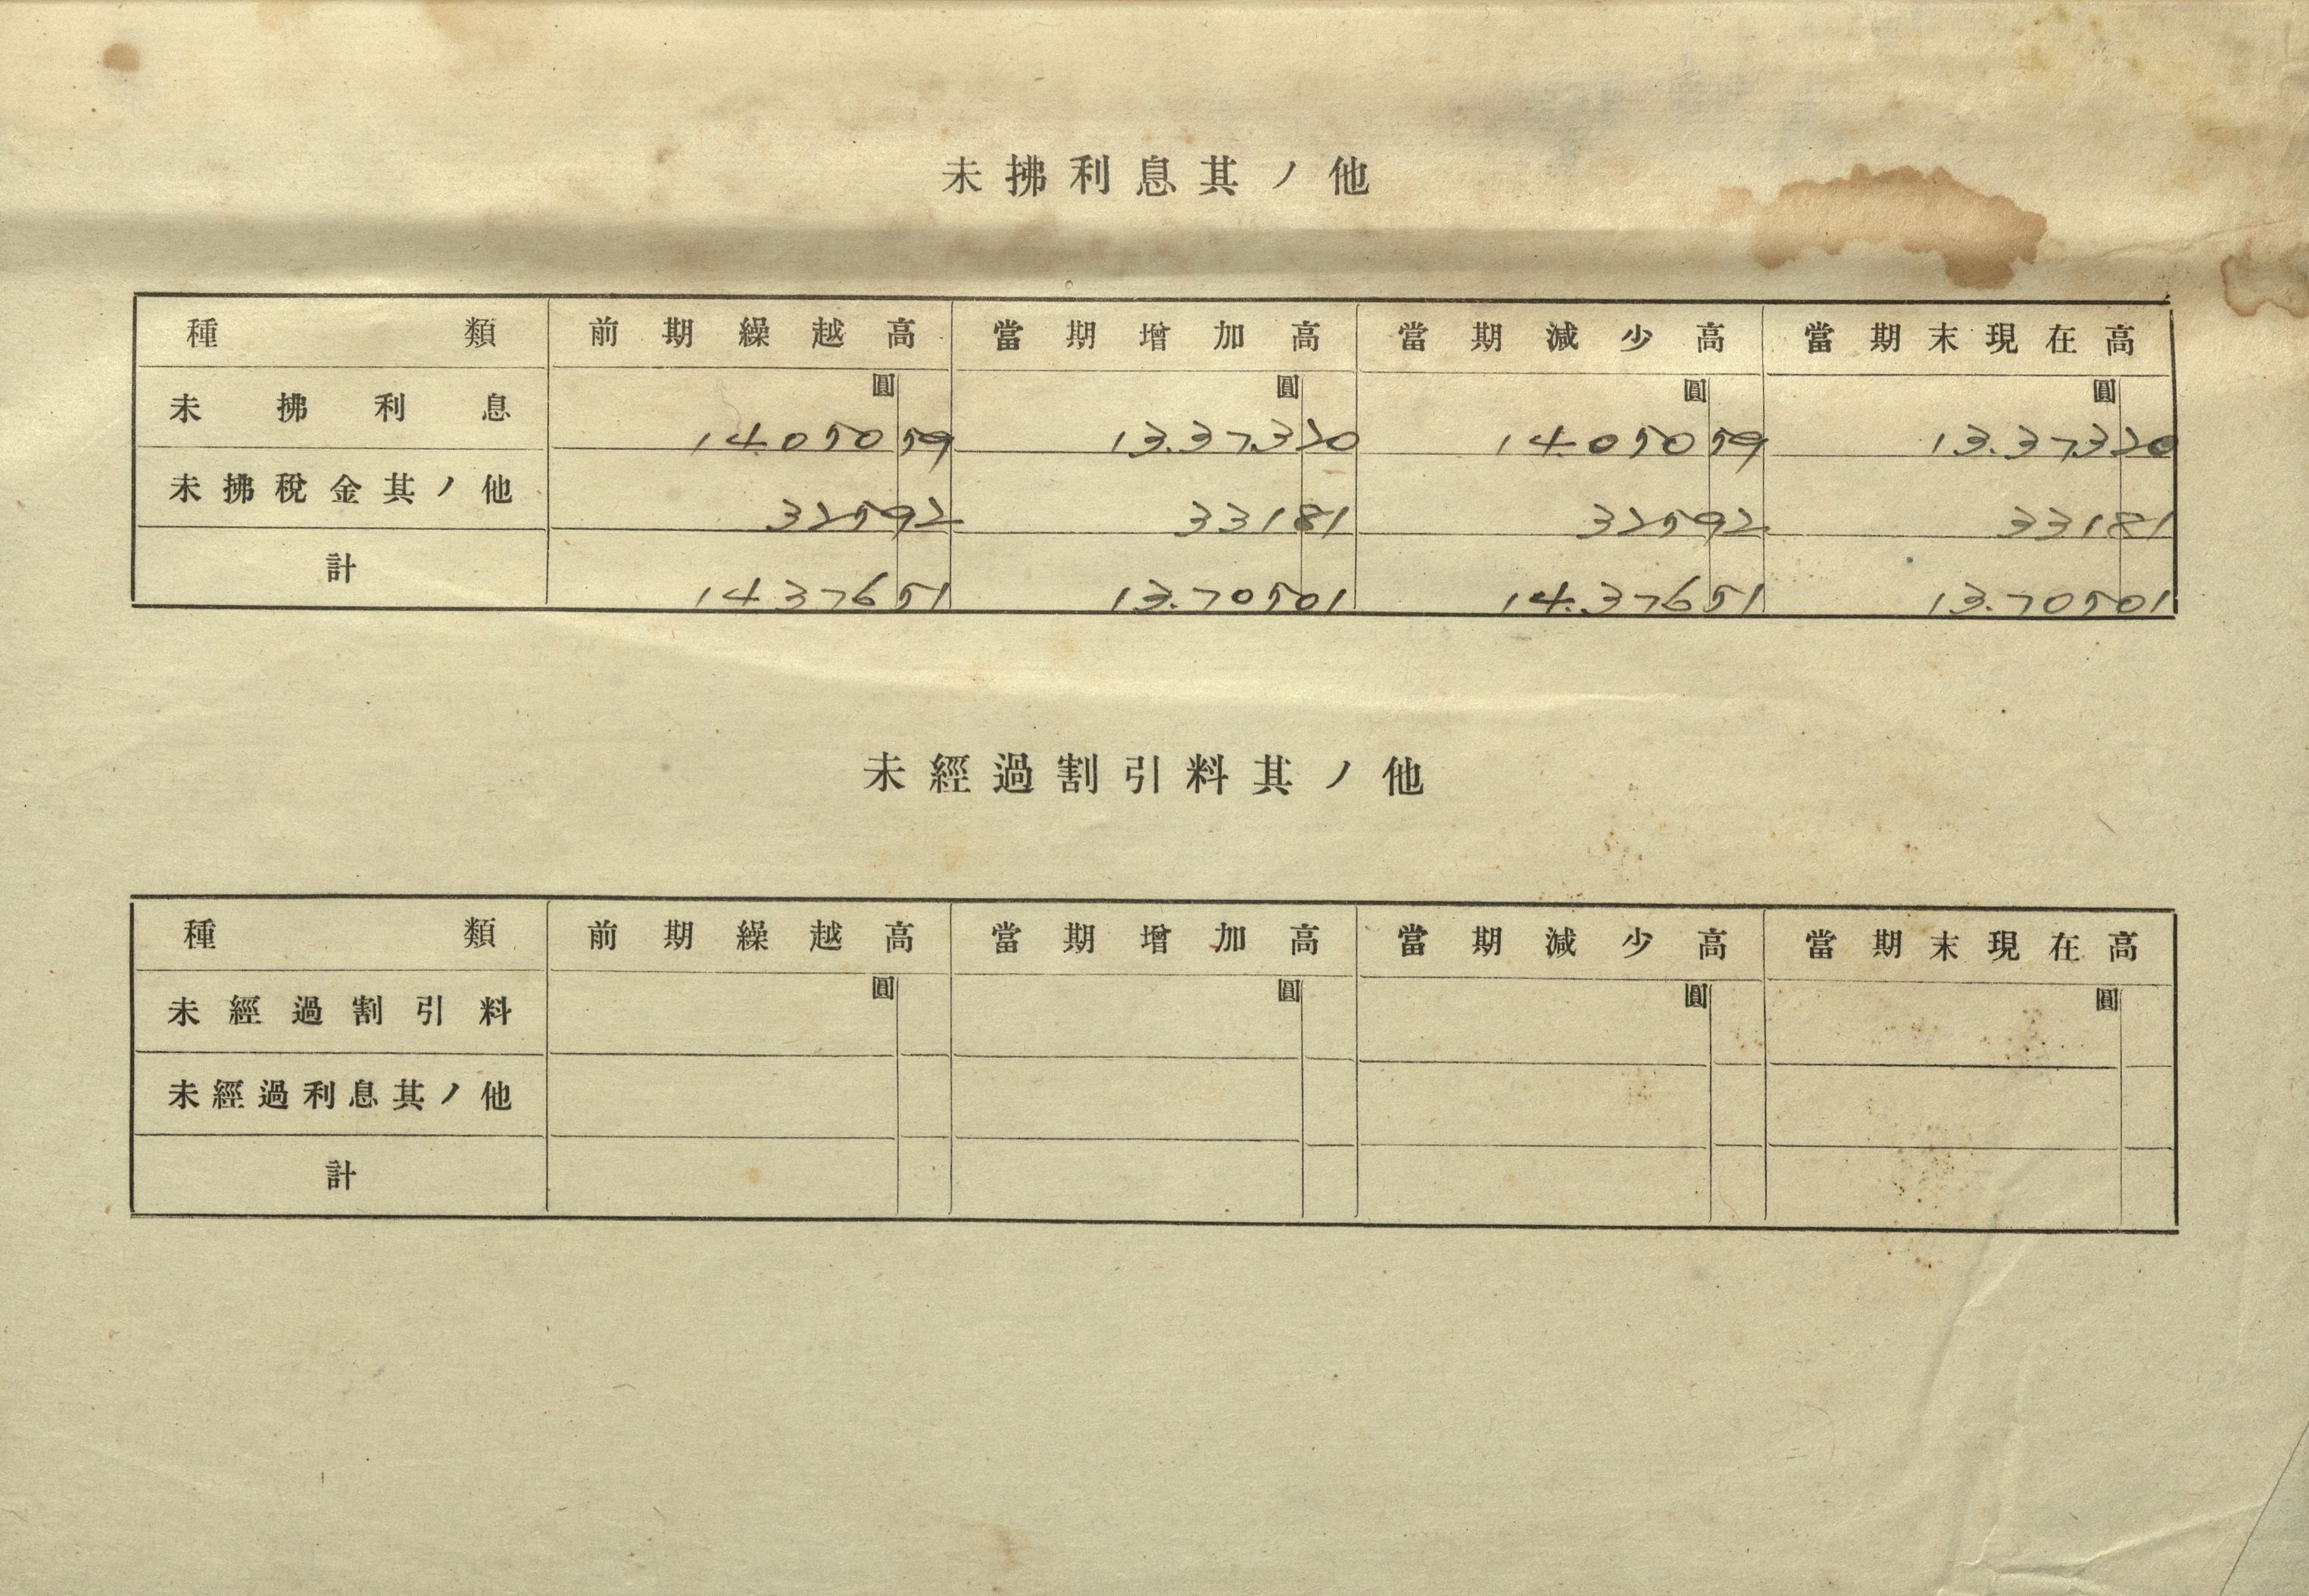 未拂利息其ノ他
種類 前期繰越高 當期增加高 當期減少高 當期末現在高
圓 圓 圓 圓
未拂利息 14.050 59 13.373 20 14.050 59 13.373 20
未拂稅金其ノ他 325 92 331 81 325 92 331 81
計 14 376 51 13.705 01 14.376 51 13.705 01
未經過割引料其ノ他
種類 前期繰越高 當期增加高 當期減少高 當期末現在高
圓 圓 圓 圓
未經過割引料
未經過利息其ノ他
計